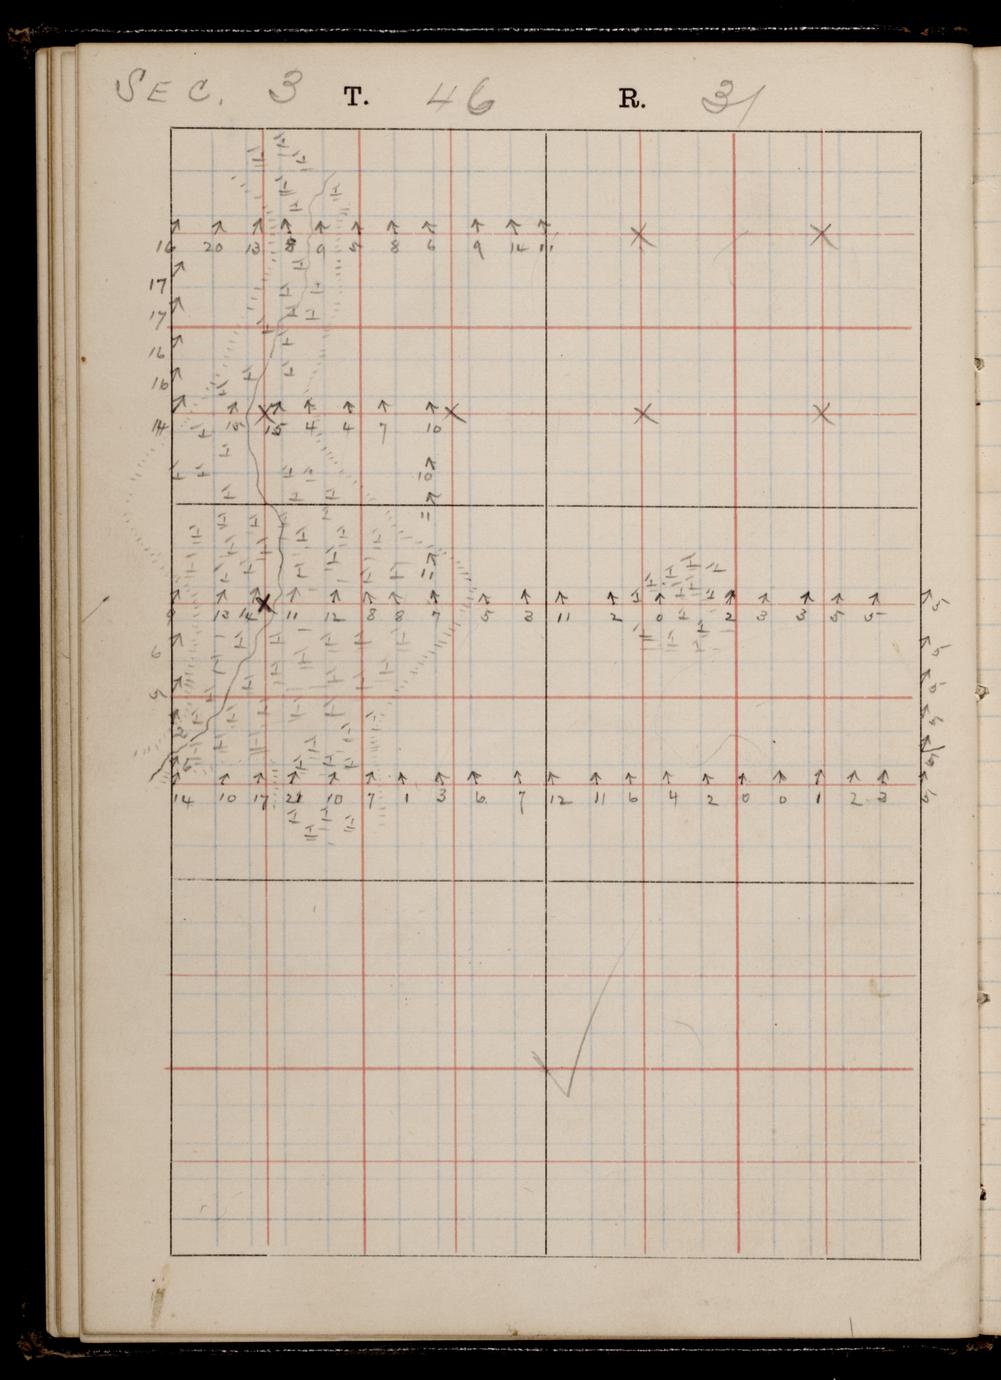 SEC. 3 T. 46 R. 31
16 20 13 8 9 5 8 6 9 14 11
17
17
16
16
14 15 15 4 4 7 10
10
11
11
9 13 14 11 12 8 8 7 5 3 11 2 0 2 3 3 5 5 5
6 5
5 6
14 10 17 21 10 7 1 3 6 7 12 11 6 4 2 0 0 1 2 3 5